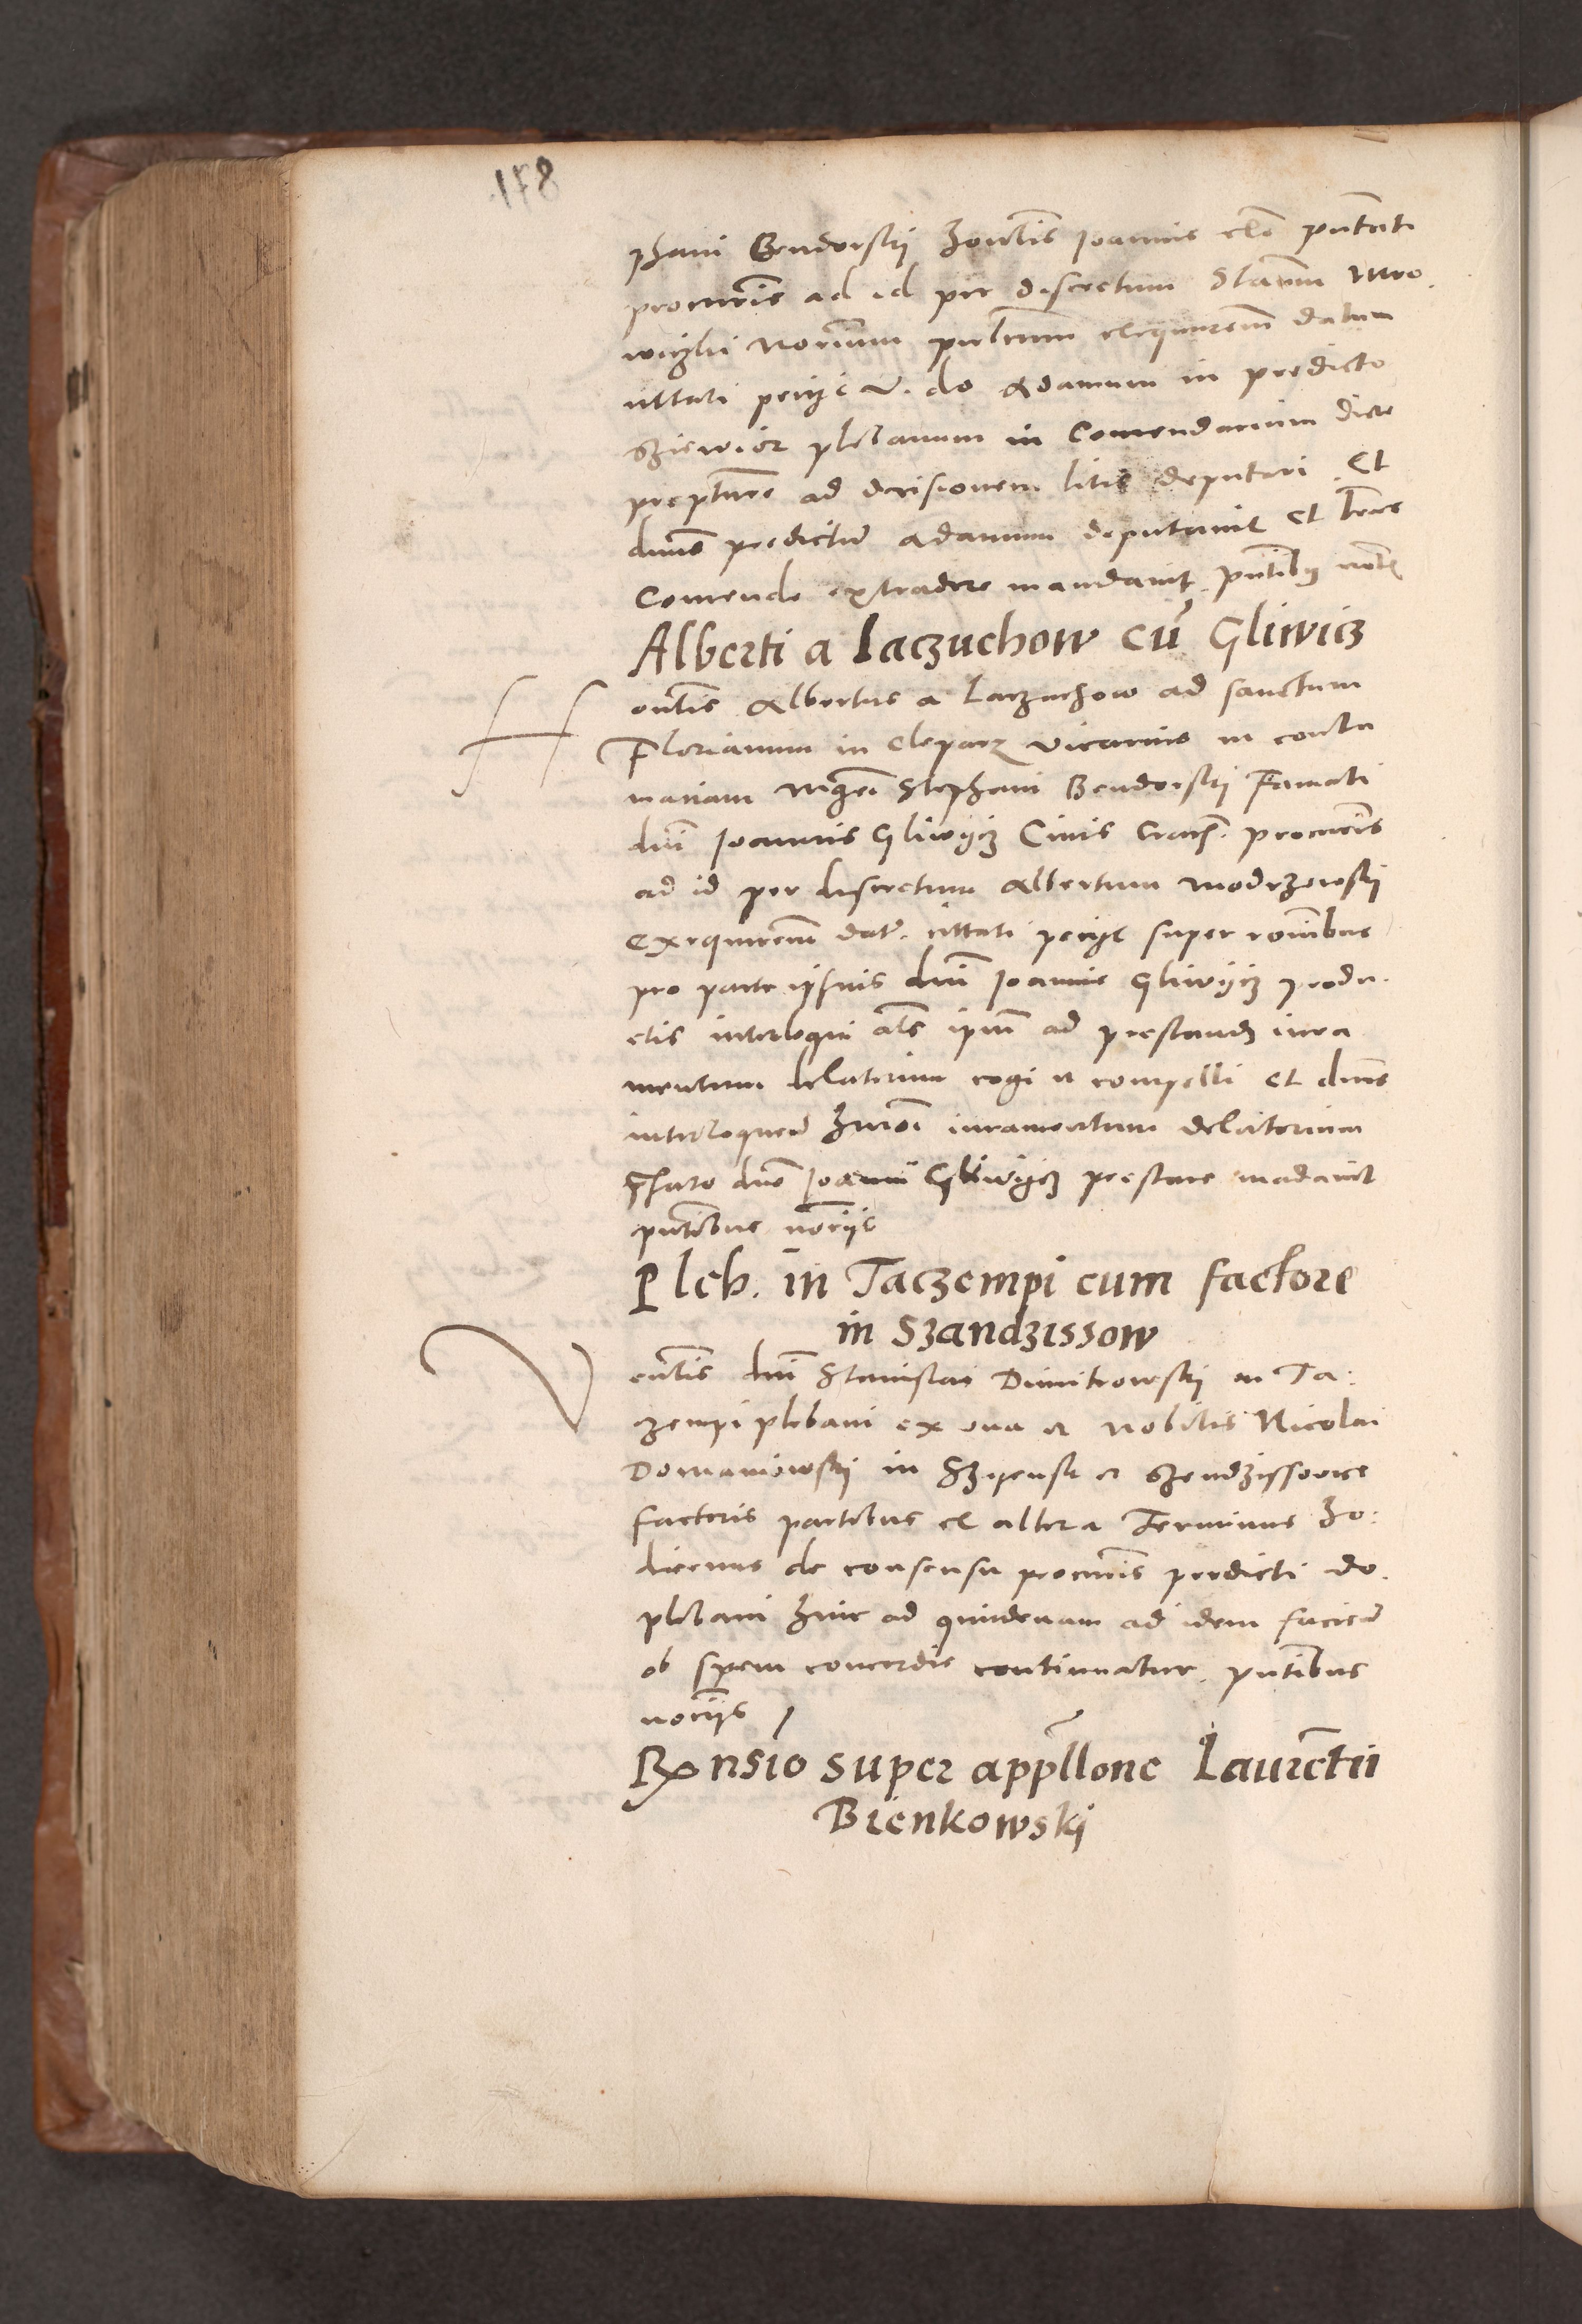 178
phani Bendorski honlis Joannis cleri pntati
procuris ad id per discretum Stanm Mro.
wiczki norium pubcum exequurem datum
cittati peciit V. do Adamum in predicto
Sziewior plebanum in Comendarium dicte
prepture ad decisionem litis deputari. Et
dnus predictum Adamum deputavit et lras
Comende extradere mandavit. pntibus notis
Alberti a Laczuchow cū Gliwicz
H onlis Albertus a Laczuchow ad sanctum
Florianum in Cleparz vicarius in contu
matiam Mgri Stephani Bendorski Famati
dni Joannis Gliwycz Civis Crac. procuris
ad id per discretum Albertum Modrzewski
exequurem dat. cittati peciit super ronibus
pro parte ipsius dni Joannis Gliwycz produ.
ctis interloqui als ipm ad prestand iura
mentum delatorium cogi et compelli et dnus
interloquen huiusmodi iuramentum delatorium
pfato dno Joanni Gliwycz prestare madavit
pntibus noriis
Pleb. in Taczempi cum factore
in Szandzissow
V enlis dni Stanislai Dmitrowski in Ta:
czempi plebani ex una et nobilis Nicolai
Domaniowski in Szyensk et Szendzissowice
factoris partibus ex altera Terminus ho:
diernus de consensu procuris predicti do.
plebani hinc ad quindenam ad idem faciend
ob spem concordie continuatur. pntibus
noriis
Rxnsio super appllone Laurētii
Bienkowski